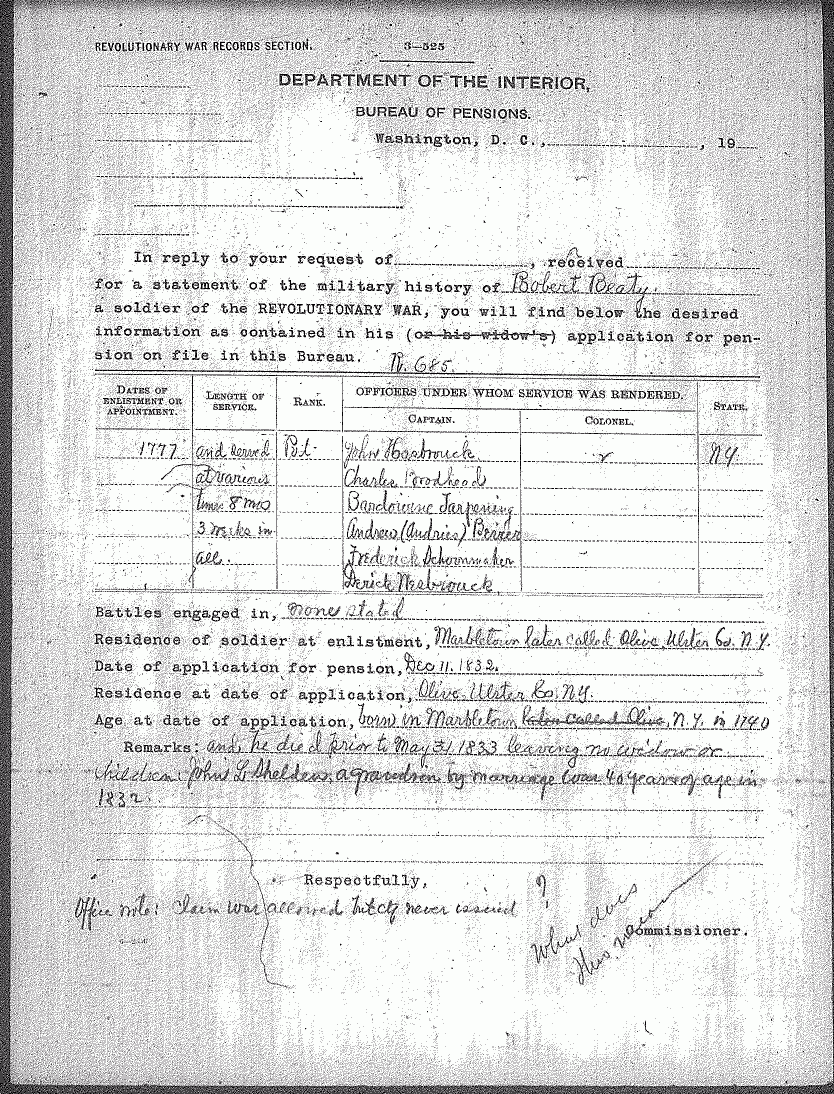 REVOLUTIONARY WAR RECORDS SECTION. 3—525
DEPARTMENT OF THE INTERIOR,
BUREAU OF PENSIONS.
Washington, D. C., , 19
In reply to your request of , received
for a statement of the military history of Robert Beaty.
a soldier of the REVOLUTIONARY WAR, you will find below the desired
information as contained in his (or his widow's) application for pen-
sion on file in this Bureau. R. 685.
DATES OF ENLISTMENT OR APPOINTMENT.
LENGTH OF SERVICE.
RANK.
OFFICERS UNDER WHOM SERVICE WAS RENDERED.
STATE.
CAPTAIN. COLONEL.
1777 and served Pvt. John Hasbrouck N.Y.
at various Charles Brodhead
times 8 mos Tarpening
3 weeks in Andrew (Andries)
all. Frederick Schoonmaker
Derick Wesbrouck
Battles engaged in, none stated
Residence of soldier at enlistment, Marbletown later called Olive, Ulster Co. N.Y.
Date of application for pension, Dec 11. 1832.
Residence at date of application, Olive Ulster Co. N.Y.
Age at date of application, born in Marbletown later called Olive, N.Y. in 1740
Remarks: and he died prior to May 31 1833 leaving no widow or
children. John L Sheldon, a grandson by marriage was 40 years of age in
1832.
Respectfully,
Office note: Claim was allowed but ctf never issued
?
What does
this mean
Commissioner.